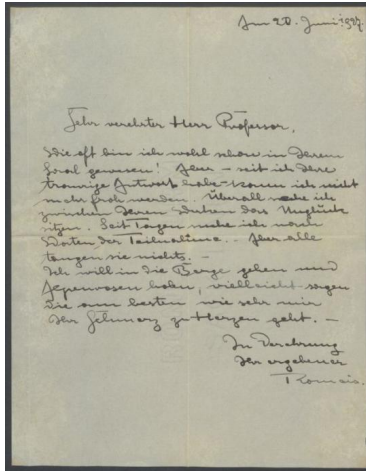 Am 20. Juni 1927.
Sehr verehrter Herr Professor,
Wie oft bin ich wohl schon in Ihrem
gewesen! Aber – seit ich Ihre
traurige Antwort habe – kann ich nicht
mehr froh werden. Überall sehe ich
zwischen Ihren das Unglück
sitzen. Seit Tagen suche ich nach
Worten der Teilnahme.. Aber alle
taugen sie nichts. –
Ich will in die Berge gehen und
Alpenrosen holen, vielleicht sagen
Sie am besten wie sehr mir
Ihr Schmerz zu Herzen geht. –
In Verehrung
Ihr ergebener